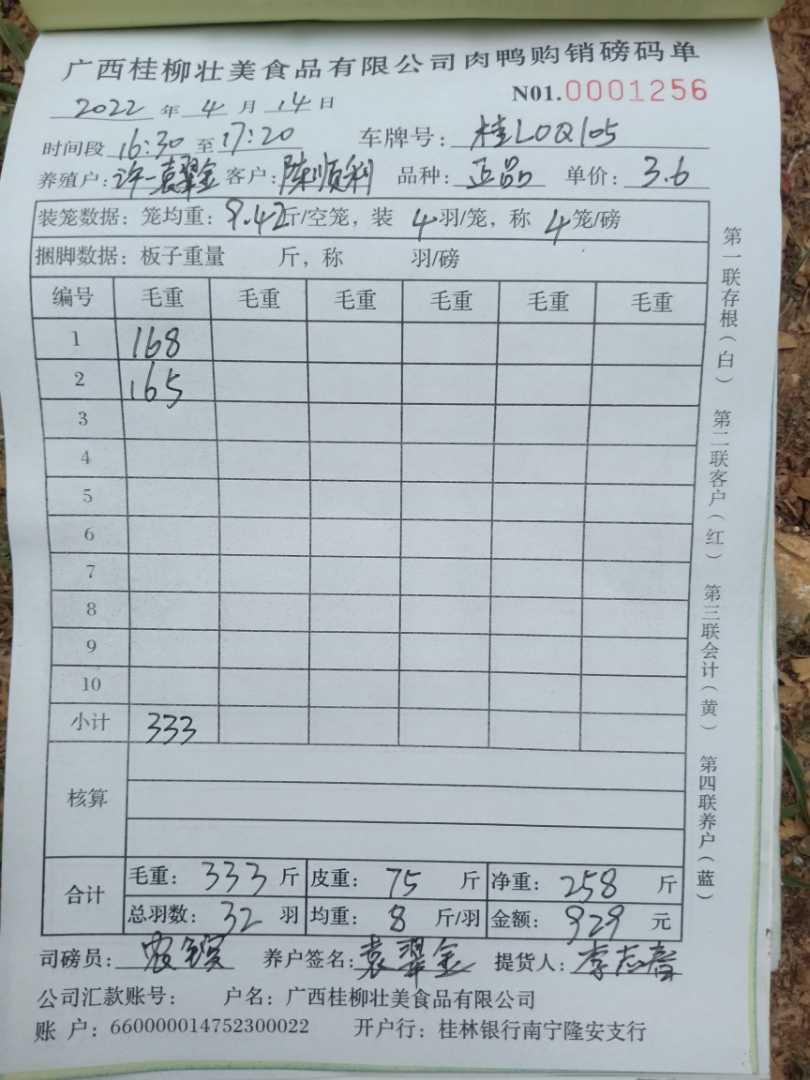 广西桂柳壮美食品有限公司肉鸭购销磅码单
N01.0001256
2022 年 4 月 14 日
时间段 16:30 至 17:20 车牌号: 桂L0Q105
养殖户: 许一袁翠金 客户: 陈顺利 品种: 正品 单价: 3.6
装笼数据: 笼均重: 9.42斤/空笼, 装 4羽/笼, 称 4笼/磅
捆脚数据: 板子重量 斤, 称 羽/磅
编号 毛重 毛重 毛重 毛重 毛重 毛重
1 168
2 165
3
4
5
6
7
8
9
10
小计 333
核算
合计 毛重: 333 斤 皮重: 75 斤 净重: 258 斤
总羽数: 32 羽 均重: 8 斤/羽 金额: 929 元
司磅员: 养户签名: 袁翠金 提货人: 李志春
公司汇款账号: 户名: 广西桂柳壮美食品有限公司
账 户: 660000014752300022 开户行: 桂林银行南宁隆安支行
第一联存根(白) 第二联客户(红) 第三联会计(黄) 第四联养户(蓝)